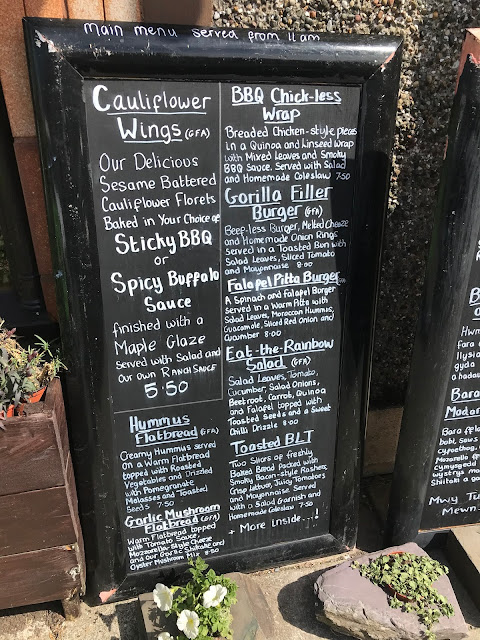 main menu served from 11am
Cauliflower
Wings (GFA)
Our Delicious
Sesame Battered
Cauliflower Florets
Baked in Your Choice of
Sticky BBQ
or
Spicy Buffalo
Sauce
finished with a
Maple Glaze
served with Salad and
our own RANCH SAUCE
5.50
Hummus
Flatbread (GFA)
Creamy Hummus served
on a Warm Flatbread
topped with Roasted
Vegetables and Drizzled
with Pomegranate
Molasses and Toasted
Seeds 7.50
Garlic Mushroom
Flatbread (GFA)
Warm Flatbread topped
with Tomato Sauce,
Mozzarella-Style Cheeze
and our Garlic Shiitake and
Oyster Mushroom Mix 8.50
BBQ Chick-less
Wrap
Breaded Chicken-style pieces
in a Quinoa and Linseed Wrap
with Mixed Leaves and Smoky
BBQ Sauce. Served with Salad
and Homemade Coleslaw 7.50
Gorilla Filler
Burger (GFA)
Beef-less Burger, Melted Cheeze
and Homemade Onion Rings
served in a Toasted Bun with
Salad Leaves, Sliced Tomato
and Mayonnaise 8.00
Falafel Pitta Burger
A Spinach and Falafel Burger
Served in a Warm Pitta with
Salad Leaves, Moroccan Hummus,
Guacamole, Sliced Red Onion and
Cucumber 8.00
Eat-the-Rainbow
Salad (GFA)
Salad Leaves, Tomato,
Cucumber, Salad Onions,
Beetroot, Carrot, Quinoa
and Falafel topped with
Toasted Seeds and a Sweet
Chilli Drizzle 8.00
Toasted BLT
Two Slices of freshly
Baked Bread Packed with
Smoky Bacon-style Rashers,
Crisp Lettuce, Juicy Tomatoes
and Mayonnaise Served
with a Salad Garnish and
Homemade Coleslaw 7.50
+ More Inside...!
Bara
Modar
Bara ffla
bob, saws
Mozarella ff
cymysgedd
Shiitaki a ga
Mwy Tu
Mewn